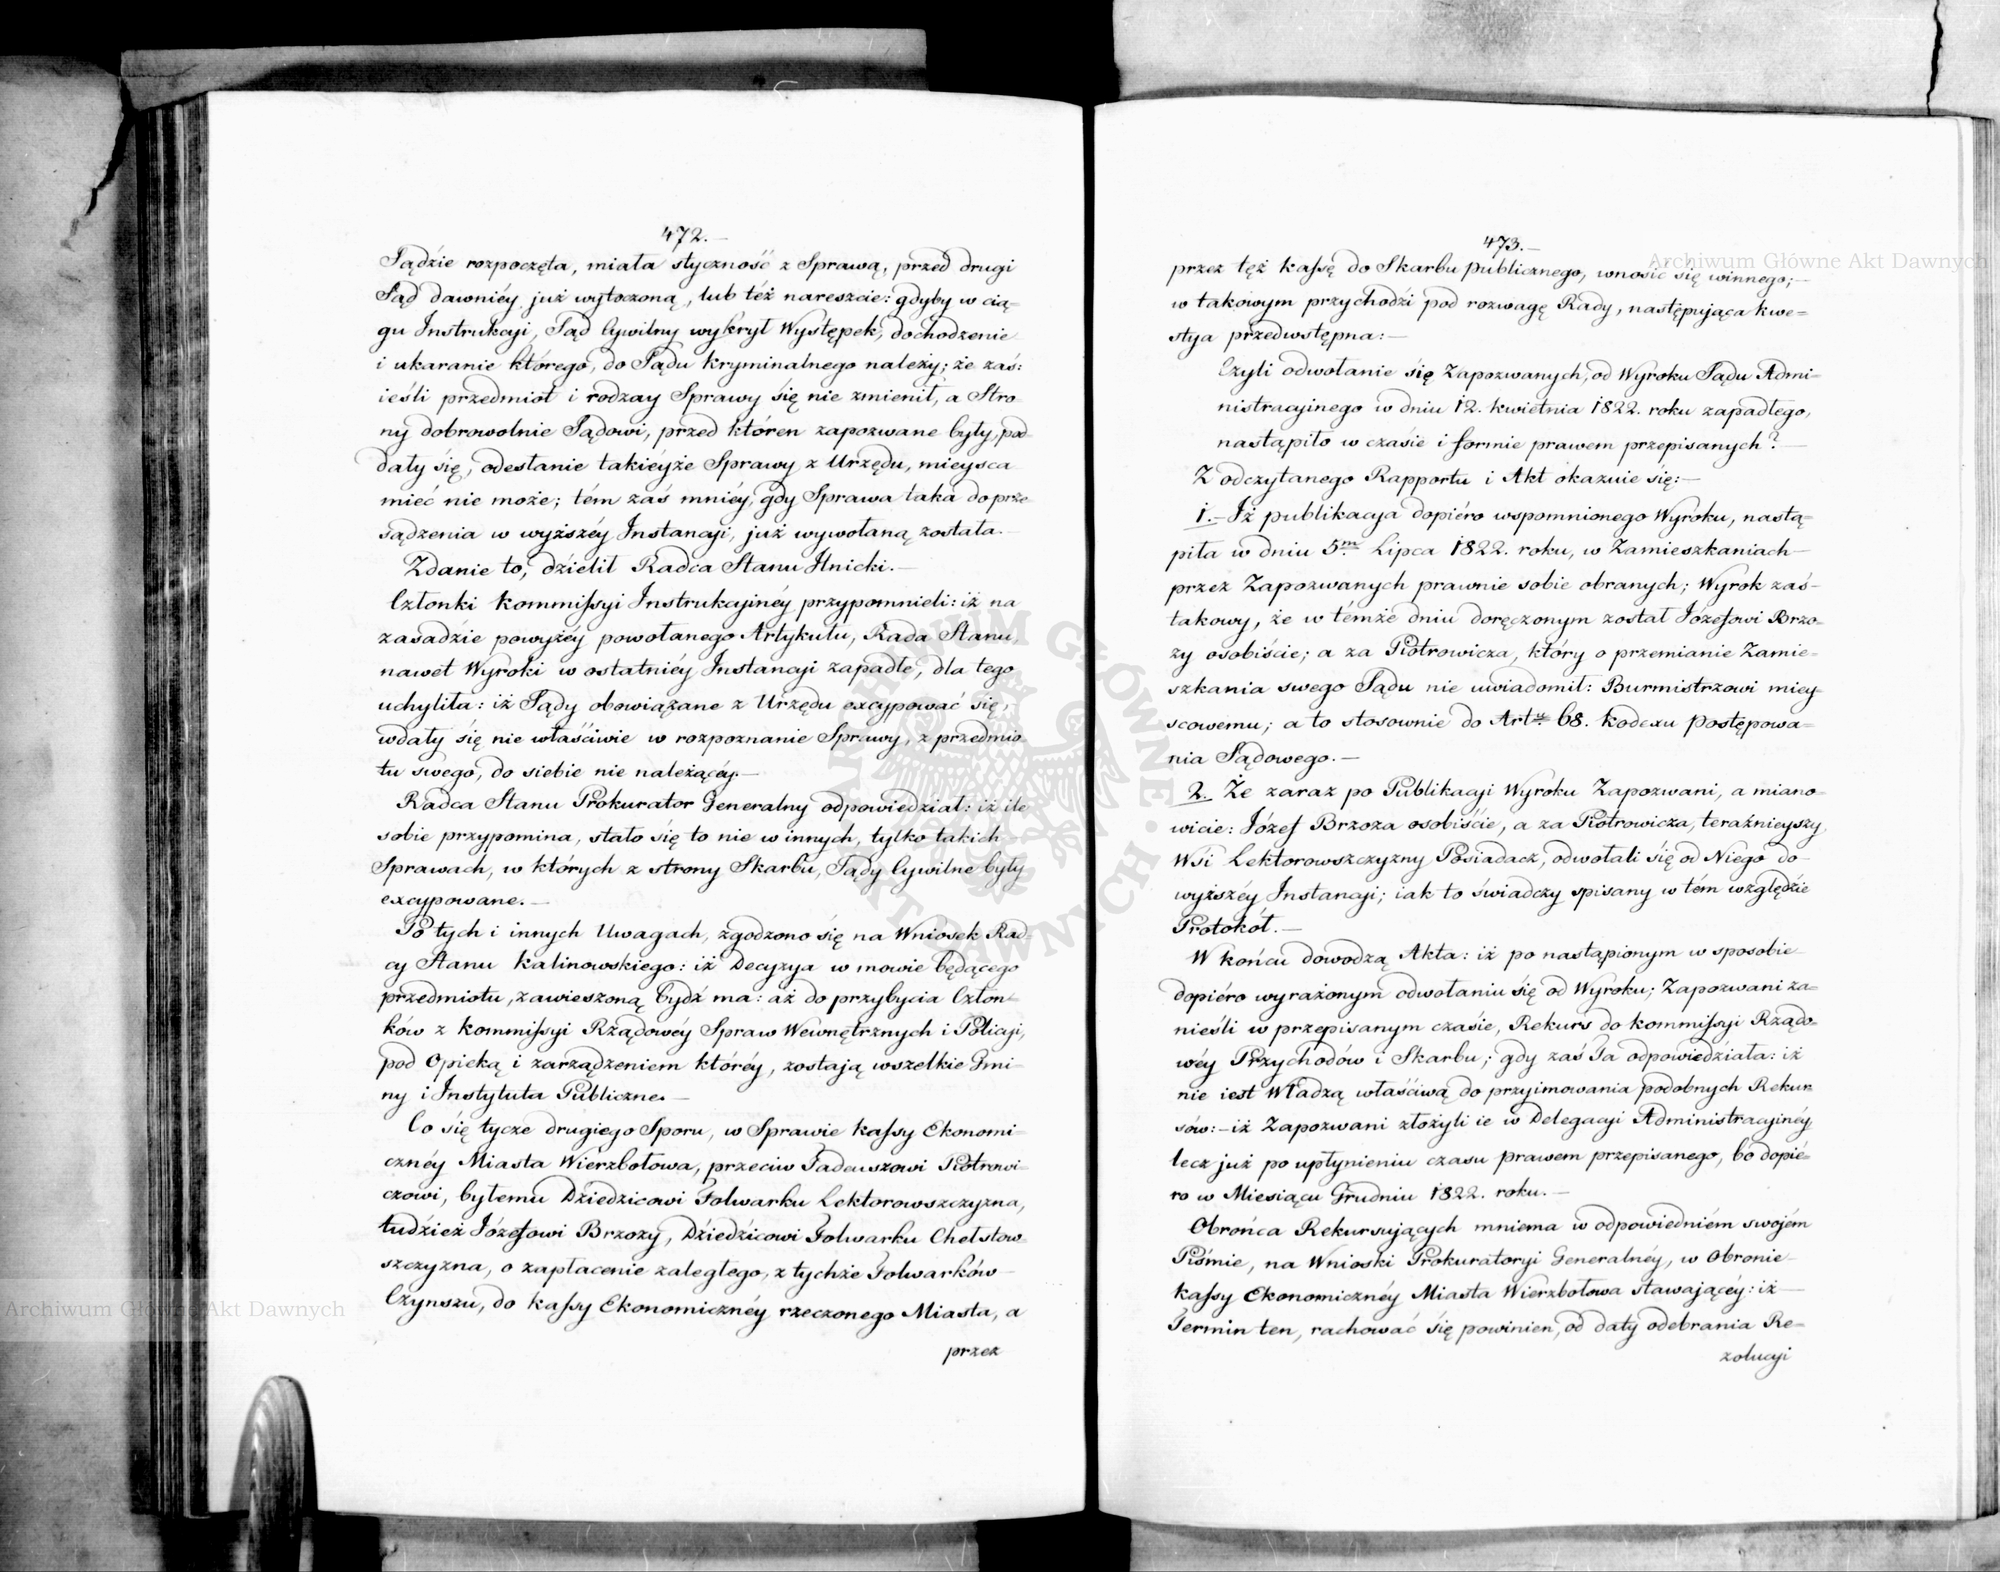 472.—
Sądzie rozpoczęta, miała styczność z Sprawą, przed drugi
Sąd dawniéy już wytoczoną, lub téż nareszcie: gdyby w cią=
gu Instrukcyi, Sąd Cywilny wykrył Występek, dochodzenie
i ukaranie którego, do Sądu Kryminalnego należy; że zaś:
ieśli przedmiot i rodzay Sprawy się nie zmienił, a Stro=
ny dobrowolnie Sądowi, przed któren zapozwane były, pod=
dały się, odesłanie takiéyże Sprawy z Urzędu, mieysca
mieć nie może; tém zaś mniéy, gdy Sprawa taka do prze=
sądzenia w wyższéy Instancyi, już wywołaną została.—
Zdanie to, dzielił Radca Stanu Ilnicki.—
Członki Kommissyi Instrukcyinéy przypomnieli: iż na
zasadzie powyżéy powołanego Artykułu, Rada Stanu,
nawet Wyroki w ostatniéy Instancyi zapadłe, dla tego
uchyliła: iż Sądy obowiązane z Urzędu excypować się,
wdały się nie właściwie w rozpoznanie Sprawy, z przedmio=
tu swego, do siebie nie należącéy.—
Radca Stanu Prokurator Generalny odpowiedział: iż ile
sobie przypomina, stało się to nie w innych, tylko takich—
Sprawach, w których z strony Skarbu, Sądy Cywilne były
excypowane.—
Po tych i innych Uwagach, zgodzono się na Wniosek Rad=
cy Stanu Kalinowskiego: iż Decyzya w mowie będącego
przedmiotu, zawieszoną bydź ma: aż do przybycia Człon=
ków z Kommissyi Rządowéy Spraw Wewnętrznych i Policyi,
pod Opieką i zarządzeniem któréy, zostają wszelkie Gmi=
ny i Instytuta Publiczne.—
Co się tycze drugiego Sporu, w Sprawie Kassy Ekonomi=
cznéy Miasta Wierzbołowa, przeciw Tadeuszowi Piotrowi=
czowi, byłemu Dziedzicowi Folwarku Lektorowszczyzna,
tudzież Józefowi Brzozy, Dziedzicowi Folwarku Chełstow=
szczyzna, o zapłacenie zaległego, z tychże Folwarków—
Czynszu, do Kassy Ekonomicznéy rzeczonego Miasta, a
przez
473.—
przez tęż Kassę do Skarbu publicznego, wnosić się winnego;—
w takowym przychodzi pod rozwagę Rady, następująca kwe=
stya przedwstępna:—
Czyli odwołanie się Zapozwanych, od Wyroku Sądu Admi=
nistracyinego w dniu 12. Kwietnia 1822. roku zapadłego,
nastąpiło w czasie i formie prawem przepisanych?—
Z odczytanego Rapportu i Akt okazuie się:—
1.— Iż publikacya dopiéro wspomnionego Wyroku, nastą=
piła w dniu 5m Lipca 1822. roku, w Zamieszkaniach—
przez Zapozwanych prawnie sobie obranych; Wyrok zaś—
takowy, że w témże dniu doręczonym został Józefowi Brzo=
zy osobiście; a za Piotrowicza, który o przemianie Zamie=
szkania swego Sądu nie uwiadomił: Burmistrzowi miey=
scowemu; a to stosownie do Artu 68. Kodexu Postępowa=
nia Sądowego.—
2. Że zaraz po Publikacyi Wyroku Zapozwani, a miano=
wicie: Józef Brzoza osobiście, a za Piotrowicza, teraźnieyszy
Wsi Lektorowszczyzny Posiadacz, odwołali się od Niego do=
wyższéy Instancyi; iak to świadczy spisany w tém względzie
Protokół.—
W końcu dowodzą Akta: iż po nastąpionym w sposobie
dopiéro wyrażonym odwołaniu się od Wyroku; Zapozwani za=
nieśli w przepisanym czasie, Rekurs do Kommissyi Rządo=
wéy Przychodów i Skarbu; gdy zaś Ta odpowiedziała: iż
nie iest Władzą właściwą do przyimowania podobnych Rekur=
sów:—iż Zapozwani złożyli ie w Delegacyi Administracyinéy
lecz już po upłynieniu czasu prawem przepisanego, bo dopié=
ro w Miesiącu Grudniu 1822. roku.—
Obrońca Rekursujących mniema w odpowiedniém swojém
Piśmie, na Wnioski Prokuratoryi Generalnéy, w Obronie—
Kassy Ekonomicznéy Miasta Wierzbołowa stawającéy: iż—
Termin ten, rachować się powinien, od daty odebrania Re=
zolucyi
Archiwum Główne Akt Dawnych
Archiwum Główne Akt Dawnych
ARCHIWUM GŁÓWNE • AKT DAWNYCH •